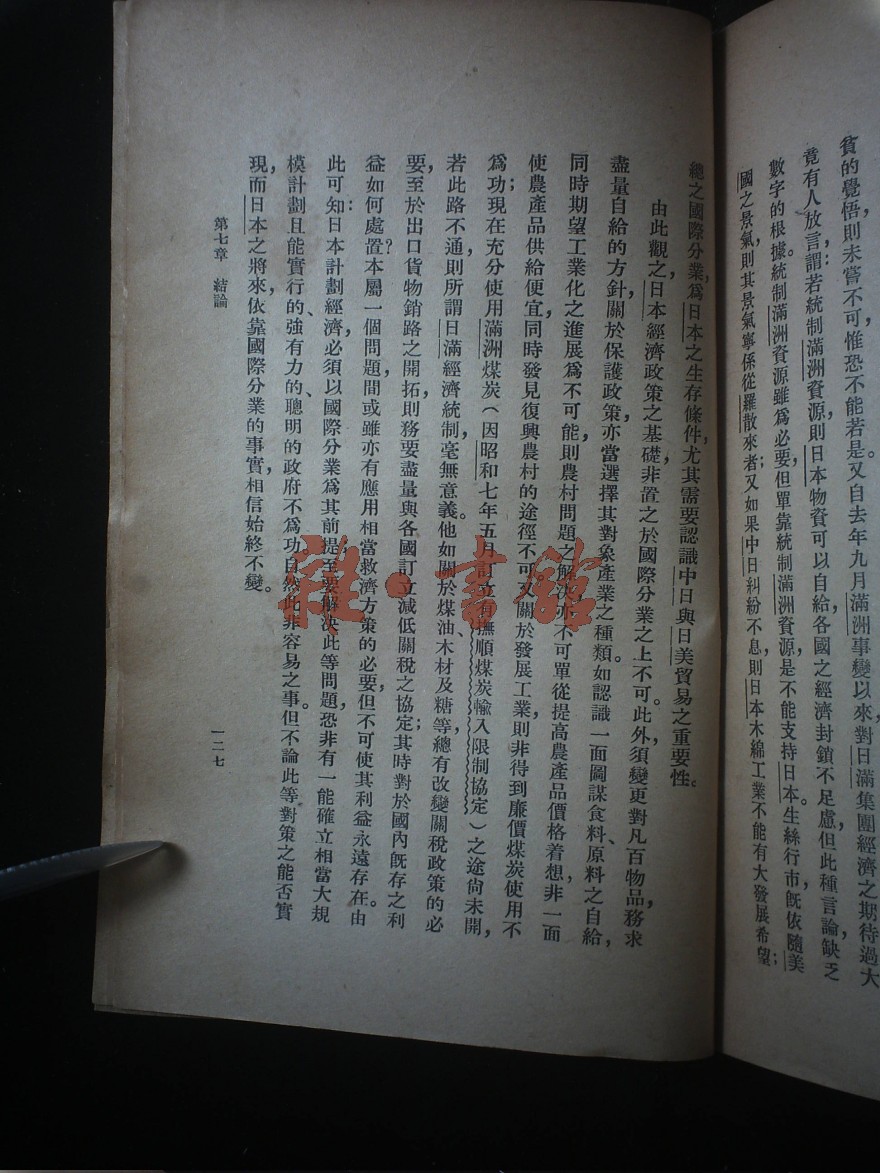 貧的覺悟,則未嘗不可,惟恐不能若是。又自去年九月滿洲事變以來,對日滿集團經濟之期待過大,
竟有人放言:謂若統制滿洲資源,則日本物資可以自給,各國之經濟封鎖不足慮。但此種言論,缺乏
數字的根據。統制滿洲資源雖爲必要,但單靠統制滿洲資源,是不能支持日本。生絲行市,旣依隨美
國之景氣,則其景氣寧係從羅散來者;又如果中日糾紛不息,則日本木綿工業不能有大發展希望;
總之國際分業,爲日本之生存條件,尤其需要認識中日與日美貿易之重要性。
由此觀之,日本經濟政策之基礎,非置之於國際分業之上不可。此外須變更對凡百物品,務求
盡量自給的方針,關於保護政策,亦當選擇其對象產業之種類。如認識一面圖謀食料、原料之自給,
同時期望工業化之進展爲不可能,則農村問題之解決,亦不可單從提高農產品價格着想,非一面
使農產品供給便宜,同時發見復興農村的途徑不可。又關於發展工業,則非得到廉價煤炭使用不
爲功;現在充分使用滿洲煤炭(因昭和七年五月訂立有撫順煤炭輸入限制協定)之途尙未開,
若此路不通,則所謂日滿經濟統制,毫無意義。他如關於煤油、木材及糖等,總有改變關稅政策的必
要,至於出口貨物銷路之開拓,則務要盡量與各國訂立減低關稅之協定;其時對於國內旣存之利
益如何處置?本屬一個問題,間或雖亦有應用相當救濟方策的必要,但不可使其利益永遠存在。由
此可知:日本計劃經濟,必須以國際分業爲其前提,至要解決此等問題,恐非有一能確立相當大規
模計劃,且能實行的、強有力的、聰明的政府不爲功。自然此非容易之事。但不論此等對策之能否實
現,而日本之將來,依靠國際分業的事實,相信始終不變。
第七章 結論
一二七
雜·書館